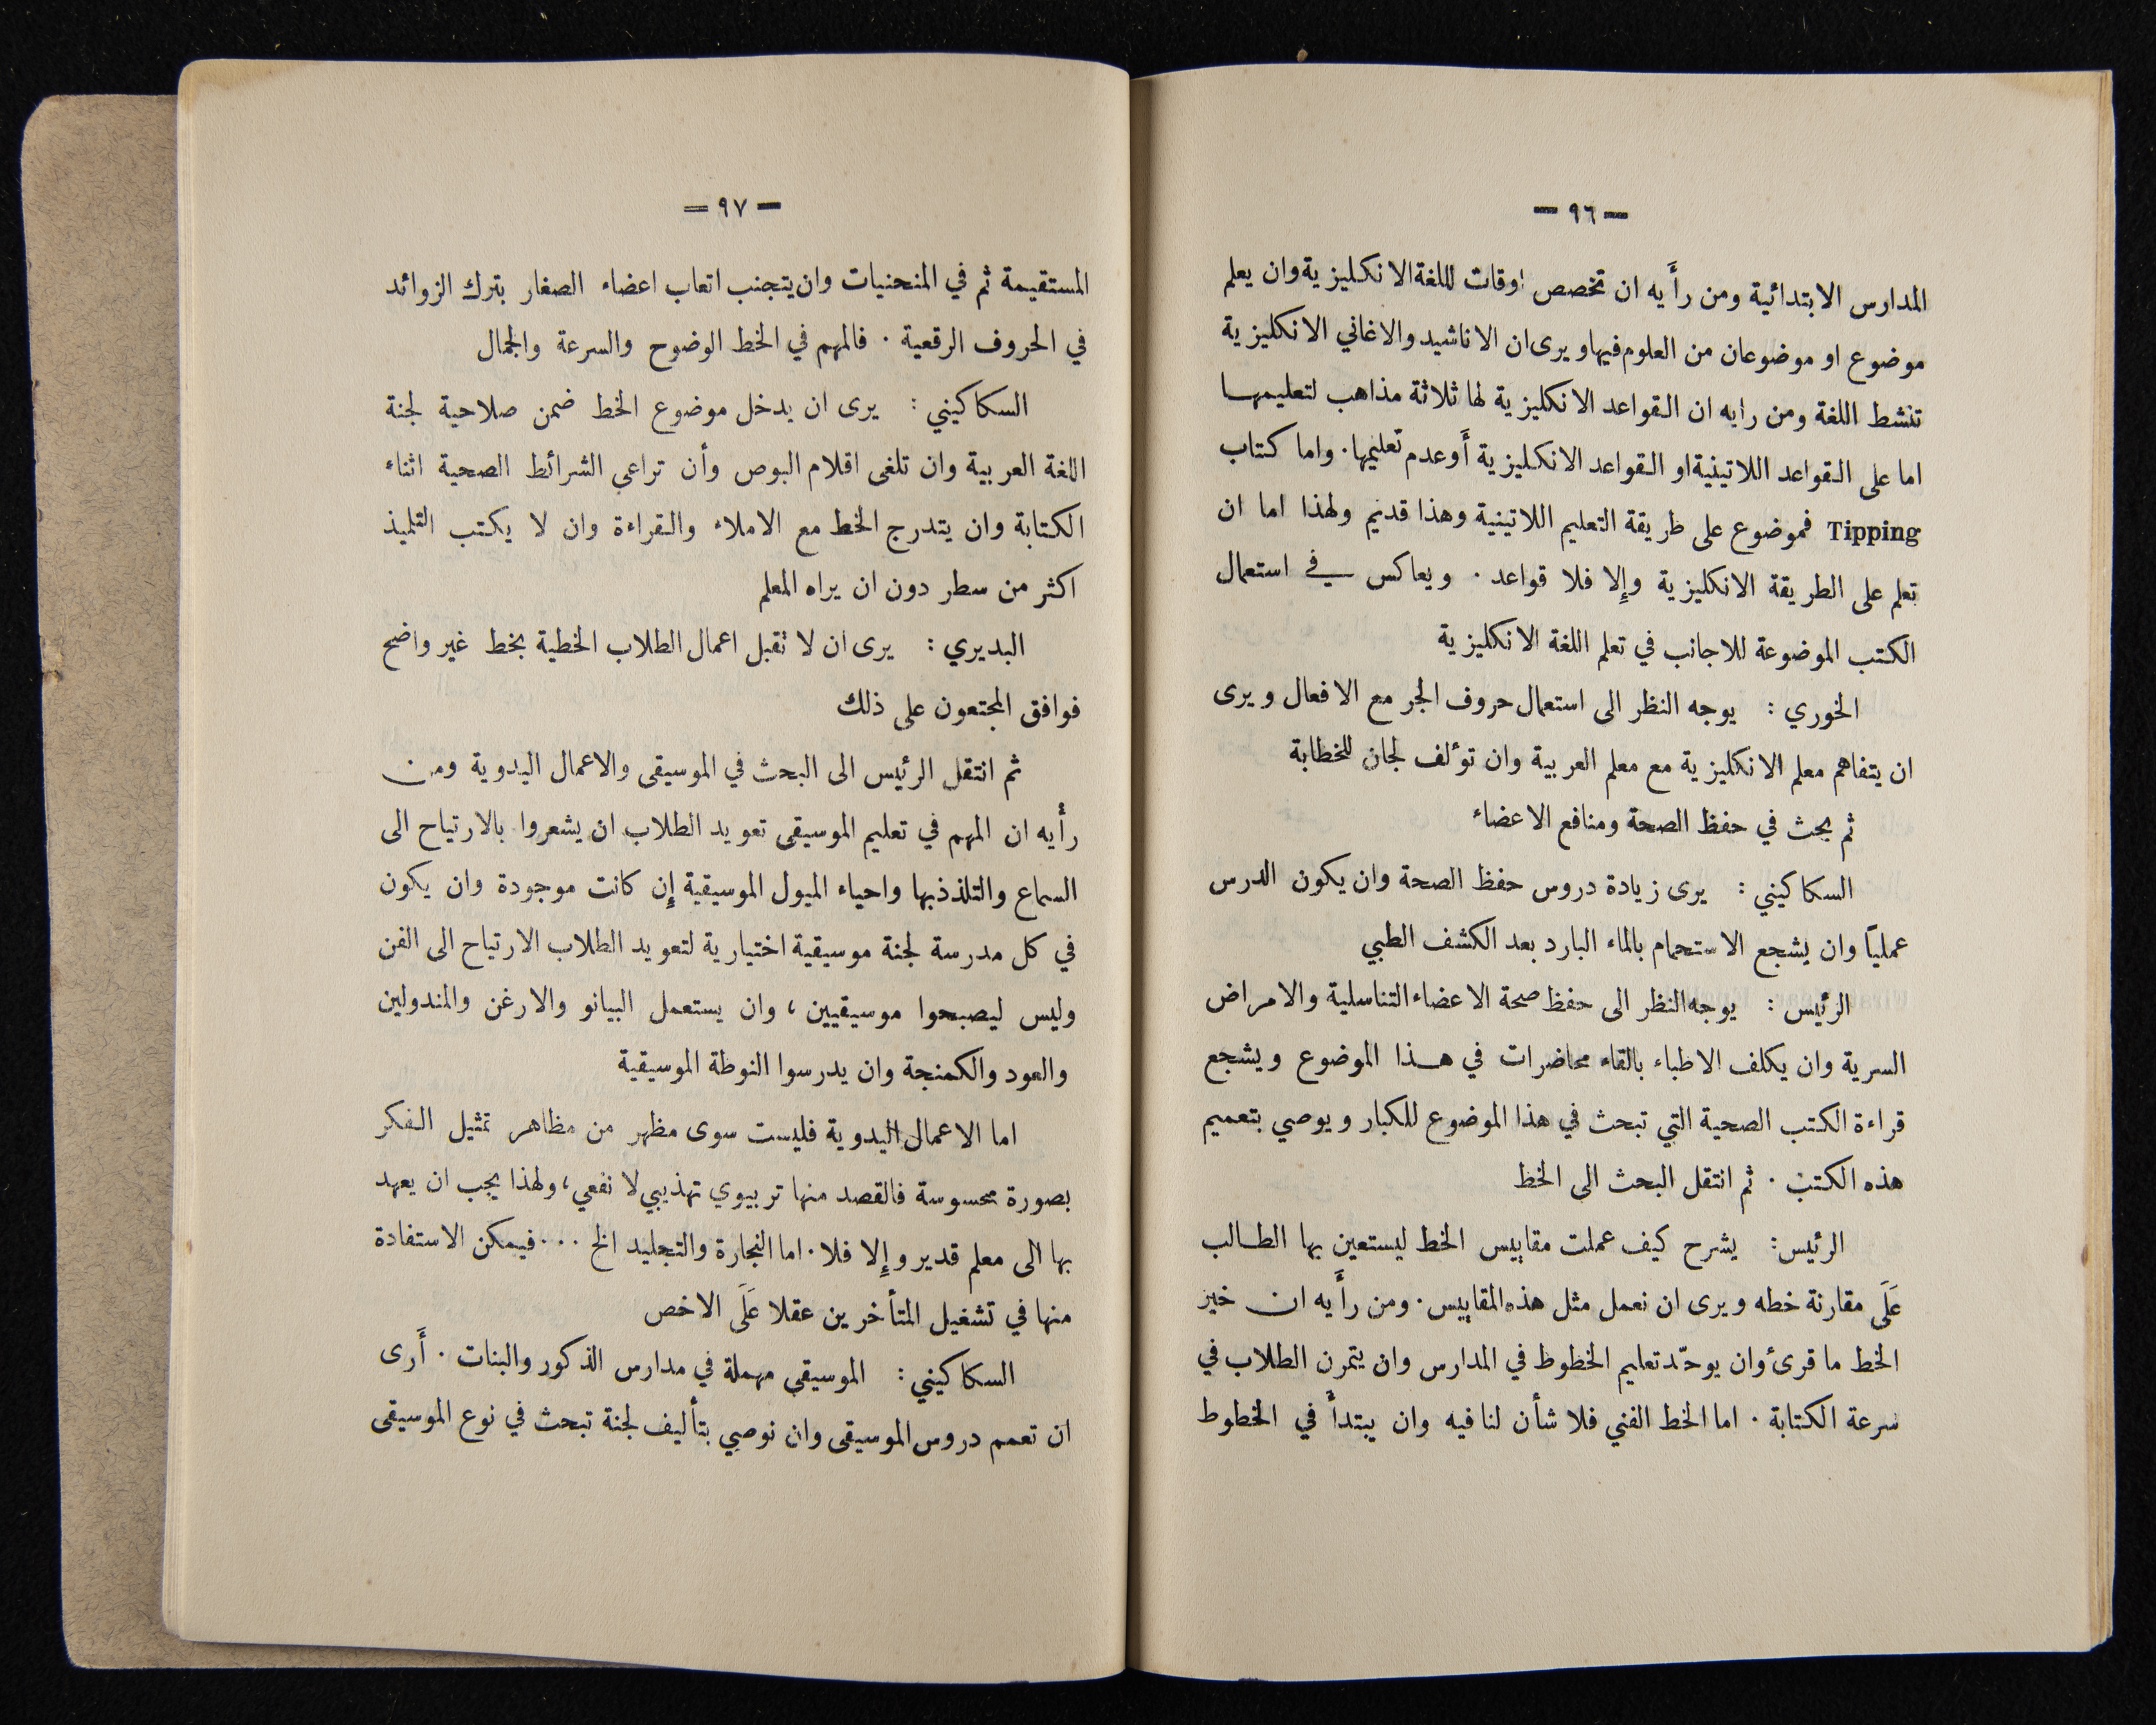 — ٩٦ —
المدارس الابتدائية ومن رأَيه ان تخصص اوقات للغة الانكليزية وان يعلم
موضوع او موضوعان من العلوم فيها ويرى ان الاناشيد والاغاني الانكليزية
تنشط اللغة ومن رايه ان القواعد الانكليزية لها ثلاثة مذاهب لتعليمها
اما على القواعد اللاتينية او القواعد الانكليزية أَو عدم تعليمها. واما كتاب
Tipping فموضوع على طريقة التعليم اللاتينية وهذا قديم ولهذا اما ان
تعلم على الطريقة الانكليزية وإِلا فلا قواعد . ويعاكس في استعمال
الكتب الموضوعة للاجانب في تعلم اللغة الانكليزية
الخوري : يوجه النظر الى استعمال حروف الجر مع الافعال ويرى
ان يتفاهم معلم الانكليزية مع معلم العربية وان تؤلف لجان للخطابة
ثم بحث في حفظ الصحة ومنافع الاعضاء
السكاكيني : يرى زيادة دروس حفظ الصحة وان يكون الدرس
عمليًا وان يشجع الاستحمام بالماء البارد بعد الكشف الطبي
الرئيس : يوجه النظر الى حفظ صحة الاعضاء التناسلية والامراض
السرية وان يكلف الاطباء بالقاء محاضرات في هذا الموضوع ويشجع
قراءة الكتب الصحية التي تبحث في هذا الموضوع للكبار ويوصي بتعميم
هذه الكتب . ثم انتقل البحث الى الخط
الرئيس: يشرح كيف عملت مقاييس الخط ليستعين بها الطالب
عَلَى مقارنة خطه ويرى ان نعمل مثل هذه المقاييس. ومن رأَيه ان خير
الخط ما قرئ وان يوحّد تعليم الخطوط في المدارس وان يتمرن الطلاب في
سرعة الكتابة . اما الخط الفني فلا شأن لنا فيه وان يبتدأَ في الخطوط
— ٩٧ —
المستقيمة ثم في المنحنيات وان يتجنب اتعاب اعضاء الصغار بترك الزوائد
في الحروف الرقعية . فالمهم في الخط الوضوح والسرعة والجمال
السكاكيني : يرى ان يدخل موضوع الخط ضمن صلاحية لجنة
اللغة العربية وان تلغى اقلام البوص وأن تراعي الشرائط الصحية اثناء
الكتابة وان يتدرج الخط مع الاملاء والقراءة وان لا يكتب التلميذ
اكثر من سطر دون ان يراه المعلم
البديري : يرى ان لا تقبل اعمال الطلاب الخطية بخط غير واضح
فوافق المجتمعون على ذلك
ثم انتقل الرئيس الى البحث في الموسيقى والاعمال اليدوية ومن
رأيه ان المهم في تعليم الموسيقى تعويد الطلاب ان يشعروا بالارتياح الى
السماع والتلذذ بها واحياء الميول الموسيقية إِن كانت موجودة وان يكون
في كل مدرسة لجنة موسيقية اختيارية لتعويد الطلاب الارتياح الى الفن
وليس ليصبحوا موسيقيين ، وان يستعمل البيانو والارغن والمندولين
والعود والكمنجة وان يدرسوا النوطة الموسيقية
اما الاعمال اليدوية فليست سوى مظهر من مظاهر تمثيل الفكر
بصورة محسوسة فالقصد منها تربيوي تهذيبي لا نفعي، ولهذا يجب ان يعهد
بها الى معلم قدير وإِلا فلا . اما النجارة والتجليد الخ ... فيمكن الاستفادة
منها في تشغيل المتأخرين عقلا عَلَى الاخص
السكاكيني : الموسيقى مهملة في مدارس الذكور والبنات . أَرى
ان تعمم دروس الموسيقى وان نوصي بتأليف لجنة تبحث في نوع الموسيقى